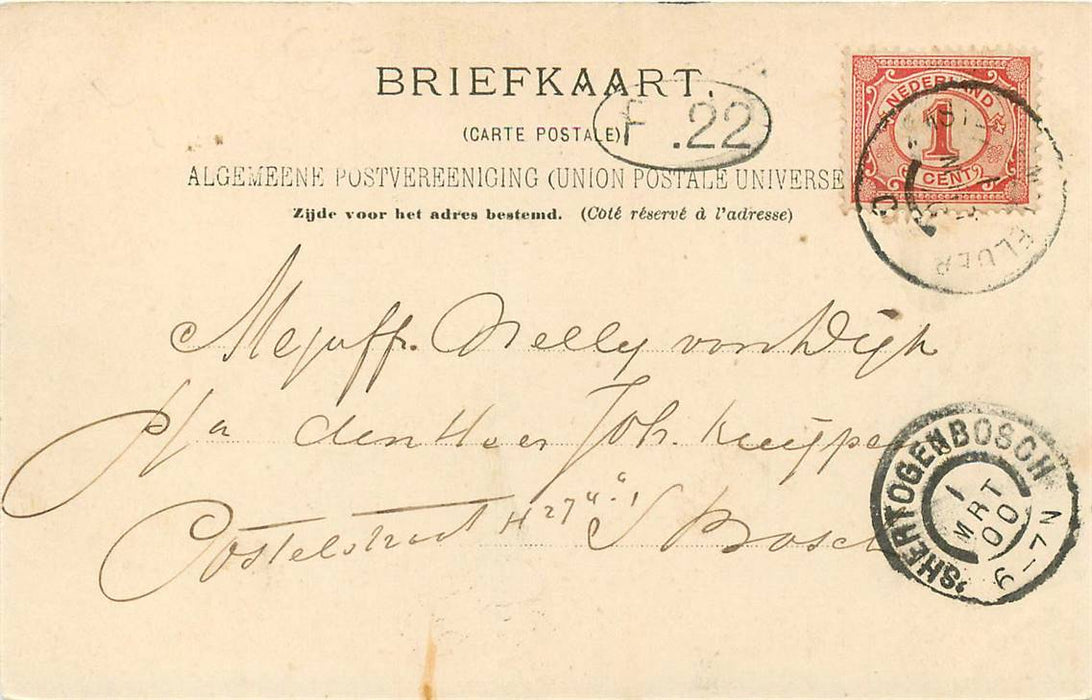 BRIEFKAART.
(CARTE POSTALE)
F .22
ALGEMEENE POSTVEREENIGING (UNION POSTALE UNIVERSE
Zijde voor het adres bestemd. (Côté réservé à l'adresse)
NEDERLAND
1
CENT
Mejuffr. Nelly van Dijk
p/a den Heer Joh. Kuijpe
Postelstraat H 274
S Bosch
'SHERTOGENBOSCH
1
MRT
00
6-7N